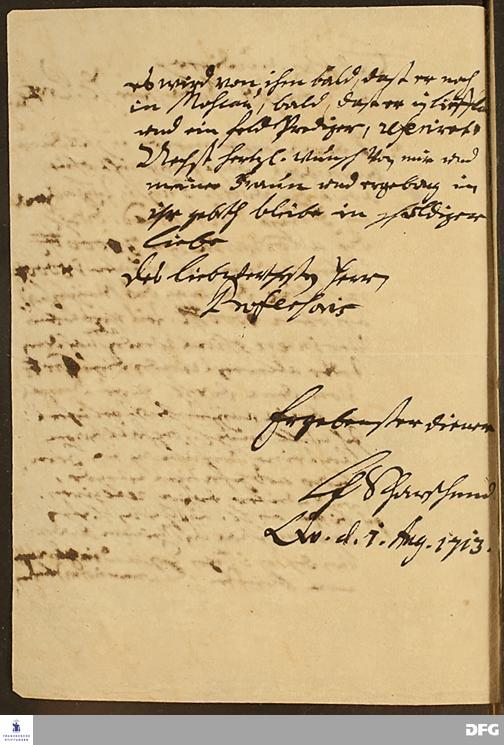 es wird von ihm bald, daß er noch
in Moscau, bald, daß er in Liefflan
und ein feld Prediger, referiret.
Nechst hertzl. wunsch von mir und
meiner Frauen und ergebung in
ihr gebeth bleibe in schuldiger
Liebe
des liebwerthesten Herrn
Professoris
Ergebenster diener
Scharschmid
d. 1. Aug. 1713.
FRANCKESCHE
STIFTUNGEN
DFG